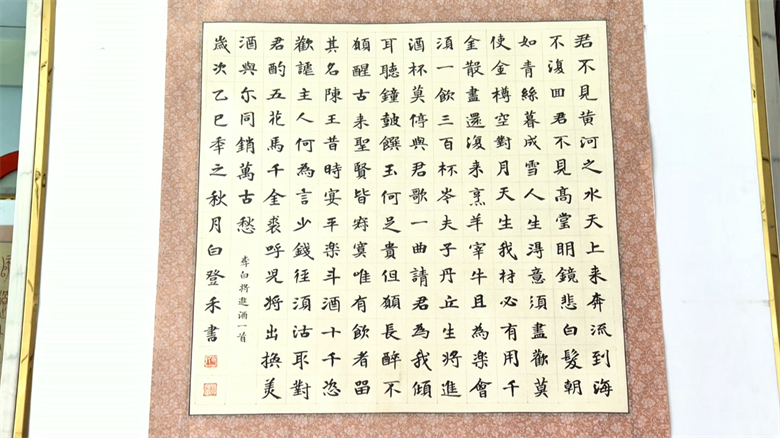 君不見黄河之水天上来奔流到海
不復回君不見髙堂明鏡悲白髮朝
如青絲暮成雪人生得意須盡歡莫
使金樽空對月天生我材必有用千
金散盡還復来烹羊宰牛且為樂會
須一飲三百杯岑夫子丹丘生將進
酒杯莫停與君歌一曲請君為我傾
耳聽鐘鼓饌玉何足貴但願長醉不
願醒古来聖賢皆寂寞唯有飲者留
其名陳王昔時宴平樂斗酒十千恣
歡謔主人何為言少錢徑須沽取對
君酌五花馬千金裘呼兒將出換美
酒與尔同銷萬古愁
李白將進酒一首
歲次乙巳年之秋月白登禾書